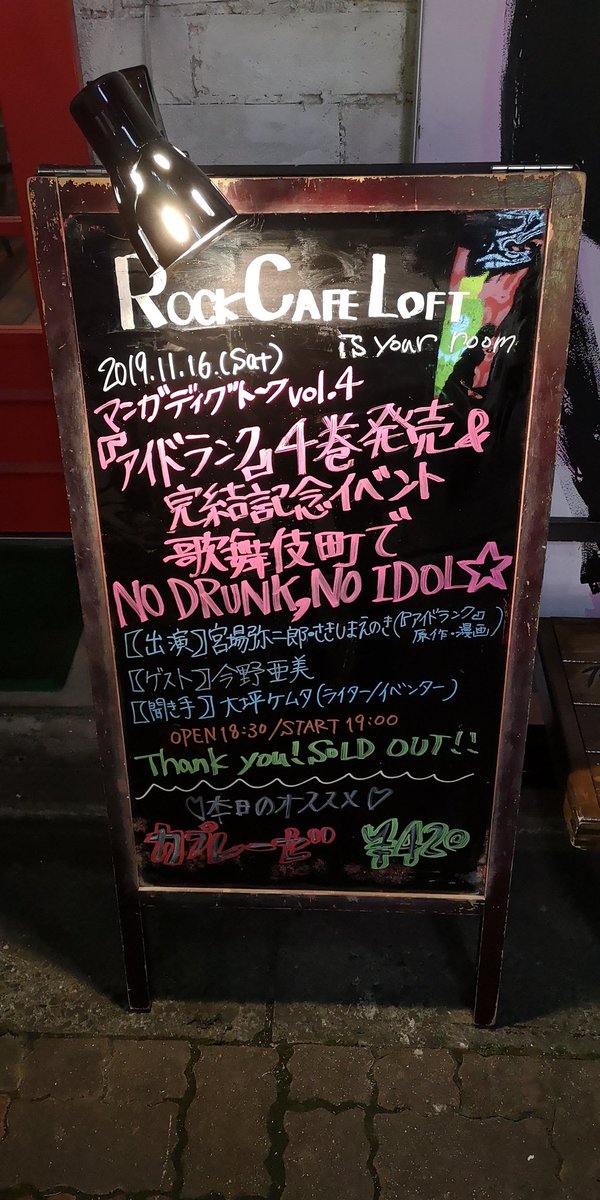 ROCK CAFE LOFT
is your room
2019.11.16.(Sat)
マンガディグトークvol.4
『アイドランク』4巻発売&
完結記念イベント
歌舞伎町で
NO DRUNK, NO IDOL☆
【出演】宮場弥二郎・さきしまえのき(『アイドランク』
原作・漫画)
【ゲスト】今野亜美
【聞き手】大坪ケムタ(ライター/イベンター)
OPEN 18:30/START 19:00
Thank you! SOLD OUT!!
♡本日のオススメ♡
カプレーゼ ¥420